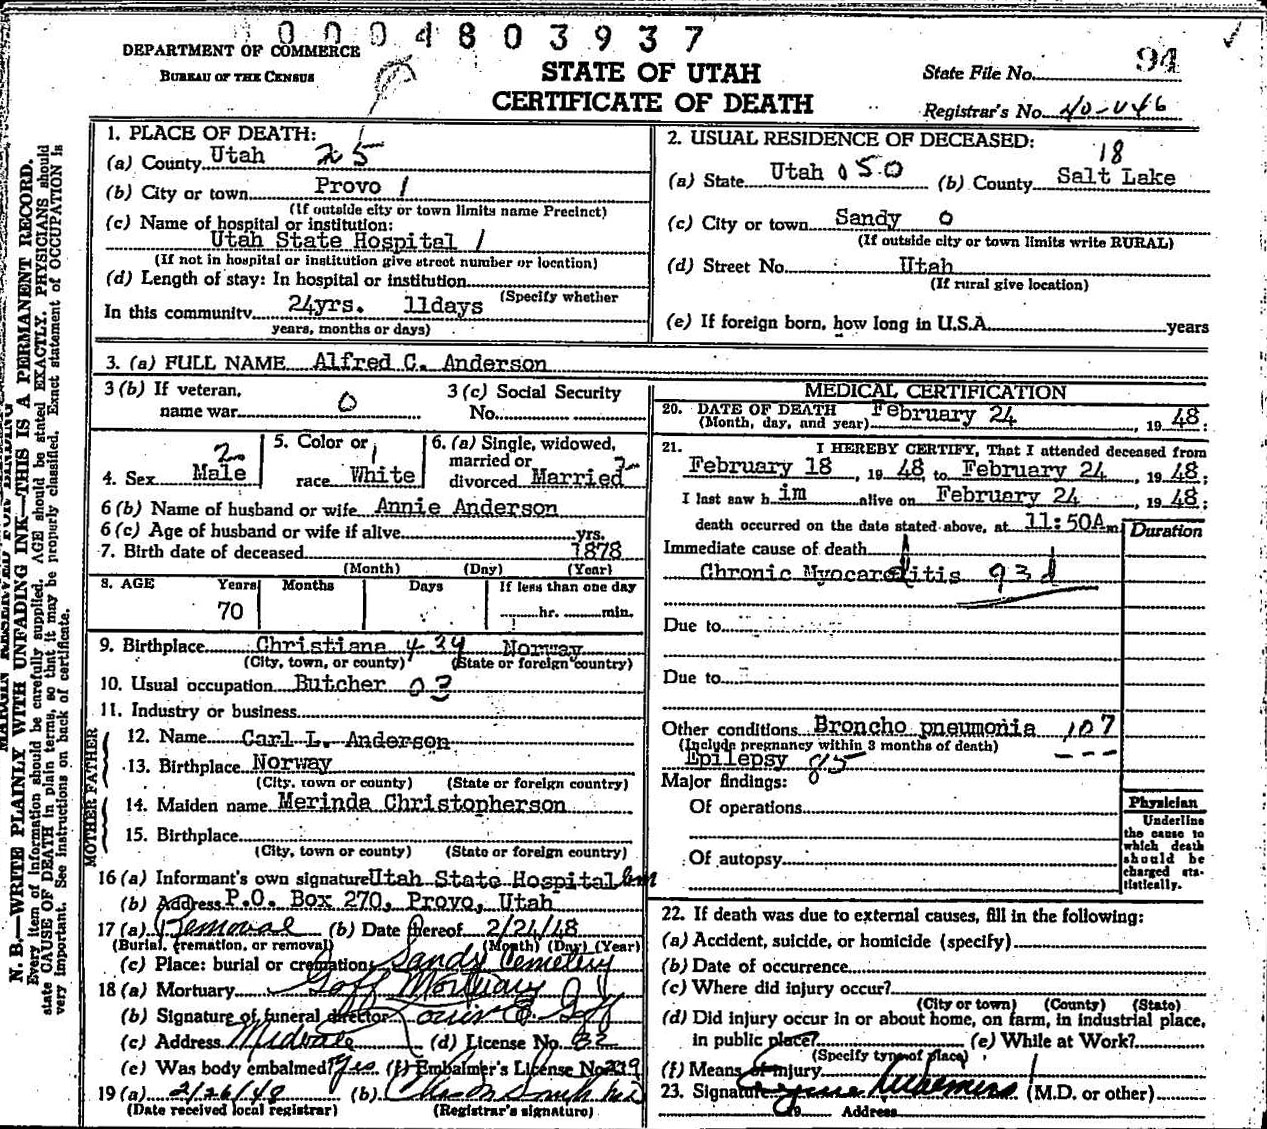 0004803937
DEPARTMENT OF COMMERCE
BUREAU OF THE CENSUS
STATE OF UTAH
CERTIFICATE OF DEATH
State File No. 94
Registrar's No. 40-046
N. B.—WRITE PLAINLY WITH UNFADING INK—THIS IS A PERMANENT RECORD.
Every item of information should be carefully supplied. AGE should be stated EXACTLY. PHYSICIANS should
state CAUSE OF DEATH in plain terms, so that it may be properly classified. Exact statement of OCCUPATION is
very important. See instructions on back of certificate.
1. PLACE OF DEATH:
(a) County Utah 25
(b) City or town Provo 1
(If outside city or town limits name Precinct)
(c) Name of hospital or institution:
Utah State Hospital 1
(If not in hospital or institution give street number or location)
(d) Length of stay: In hospital or institution
(Specify whether
In this community 24yrs. 11days
years, months or days)
2. USUAL RESIDENCE OF DECEASED:
18
(a) State Utah 050 (b) County Salt Lake
(c) City or town Sandy 0
(If outside city or town limits write RURAL)
(d) Street No. Utah
(If rural give location)
(e) If foreign born, how long in U.S.A. years
3. (a) FULL NAME Alfred C. Anderson
3 (b) If veteran, 3 (c) Social Security
name war 0 No.
4. Sex Male 2
5. Color or race White 1
6. (a) Single, widowed,
married or
divorced Married 2
6 (b) Name of husband or wife Annie Anderson
6 (c) Age of husband or wife if alive yrs.
7. Birth date of deceased 1878
(Month) (Day) (Year)
8. AGE Years Months Days If less than one day
70 hr. min.
9. Birthplace Christiana 434 Norway
(City, town, or county) (State or foreign country)
10. Usual occupation Butcher 03
11. Industry or business
FATHER
12. Name Carl L. Anderson
13. Birthplace Norway
(City, town or county) (State or foreign country)
MOTHER
14. Maiden name Merinda Christopherson
15. Birthplace
(City, town or county) (State or foreign country)
16 (a) Informant's own signature Utah State Hospital
(b) Address P.O. Box 270, Provo, Utah
17 (a) Removal (b) Date thereof 2/24/48
(Burial, cremation, or removal) (Month) (Day) (Year)
(c) Place: burial or cremation Sandy Cemetery
18 (a) Mortuary Goff Mortuary
(b) Signature of funeral director Louis E Goff
(c) Address Midvale (d) License No. 82
(e) Was body embalmed? Yes (f) Embalmer's License No. 239
19 (a) 2/26/48 (b)
(Date received local registrar) (Registrar's signature)
MEDICAL CERTIFICATION
20. DATE OF DEATH February 24, 1948:
(Month, day, and year)
21. I HEREBY CERTIFY, That I attended deceased from
February 18, 1948 to February 24, 1948;
I last saw him alive on February 24, 1948;
death occurred on the date stated above, at 11:50A m
Duration
Immediate cause of death
Chronic Myocarditis 93d
Due to
Due to
Other conditions Broncho pneumonia 107
(Include pregnancy within 3 months of death)
Epilepsy 85
Major findings:
Of operations
Of autopsy
Physician
Underline
the cause to
which death
should be
charged sta-
tistically.
22. If death was due to external causes, fill in the following:
(a) Accident, suicide, or homicide (specify)
(b) Date of occurrence
(c) Where did injury occur?
(City or town) (County) (State)
(d) Did injury occur in or about home, on farm, in industrial place,
in public place? (e) While at Work?
(Specify type of place)
(f) Means of injury
23. Signature Eugene (M.D. or other)
19 Address